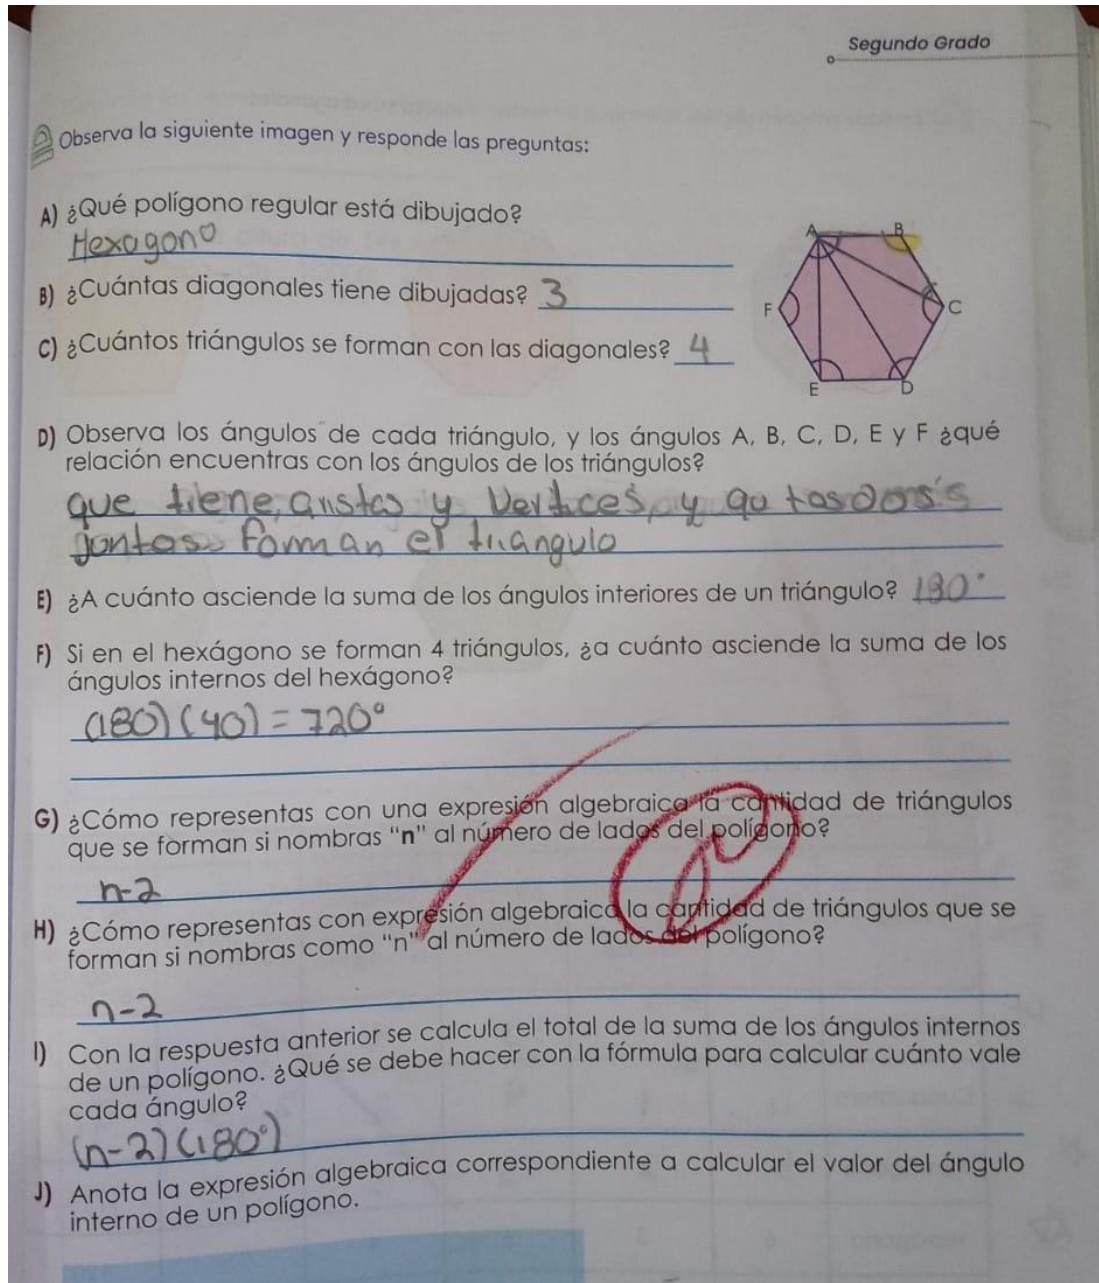 Segundo Grado
Observa la siguiente imagen y responde las preguntas:
A) ¿Qué polígono regular está dibujado?
Hexagono
B) ¿Cuántas diagonales tiene dibujadas? 3
C) ¿Cuántos triángulos se forman con las diagonales? 4
A B
F C
E D
D) Observa los ángulos de cada triángulo, y los ángulos A, B, C, D, E y F ¿qué
relación encuentras con los ángulos de los triángulos?
que tiene, aristas y Vertices, y
juntos forman el triangulo
E) ¿A cuánto asciende la suma de los ángulos interiores de un triángulo? 180°
F) Si en el hexágono se forman 4 triángulos, ¿a cuánto asciende la suma de los
ángulos internos del hexágono?
(180) (40) = 720°
G) ¿Cómo representas con una expresión algebraica la cantidad de triángulos
que se forman si nombras "n" al número de lados del polígono?
n-2
H) ¿Cómo representas con expresión algebraica la cantidad de triángulos que se
forman si nombras como "n" al número de lados del polígono?
n-2
I) Con la respuesta anterior se calcula el total de la suma de los ángulos internos
de un polígono. ¿Qué se debe hacer con la fórmula para calcular cuánto vale
cada ángulo?
(n-2) (180°)
J) Anota la expresión algebraica correspondiente a calcular el valor del ángulo
interno de un polígono.